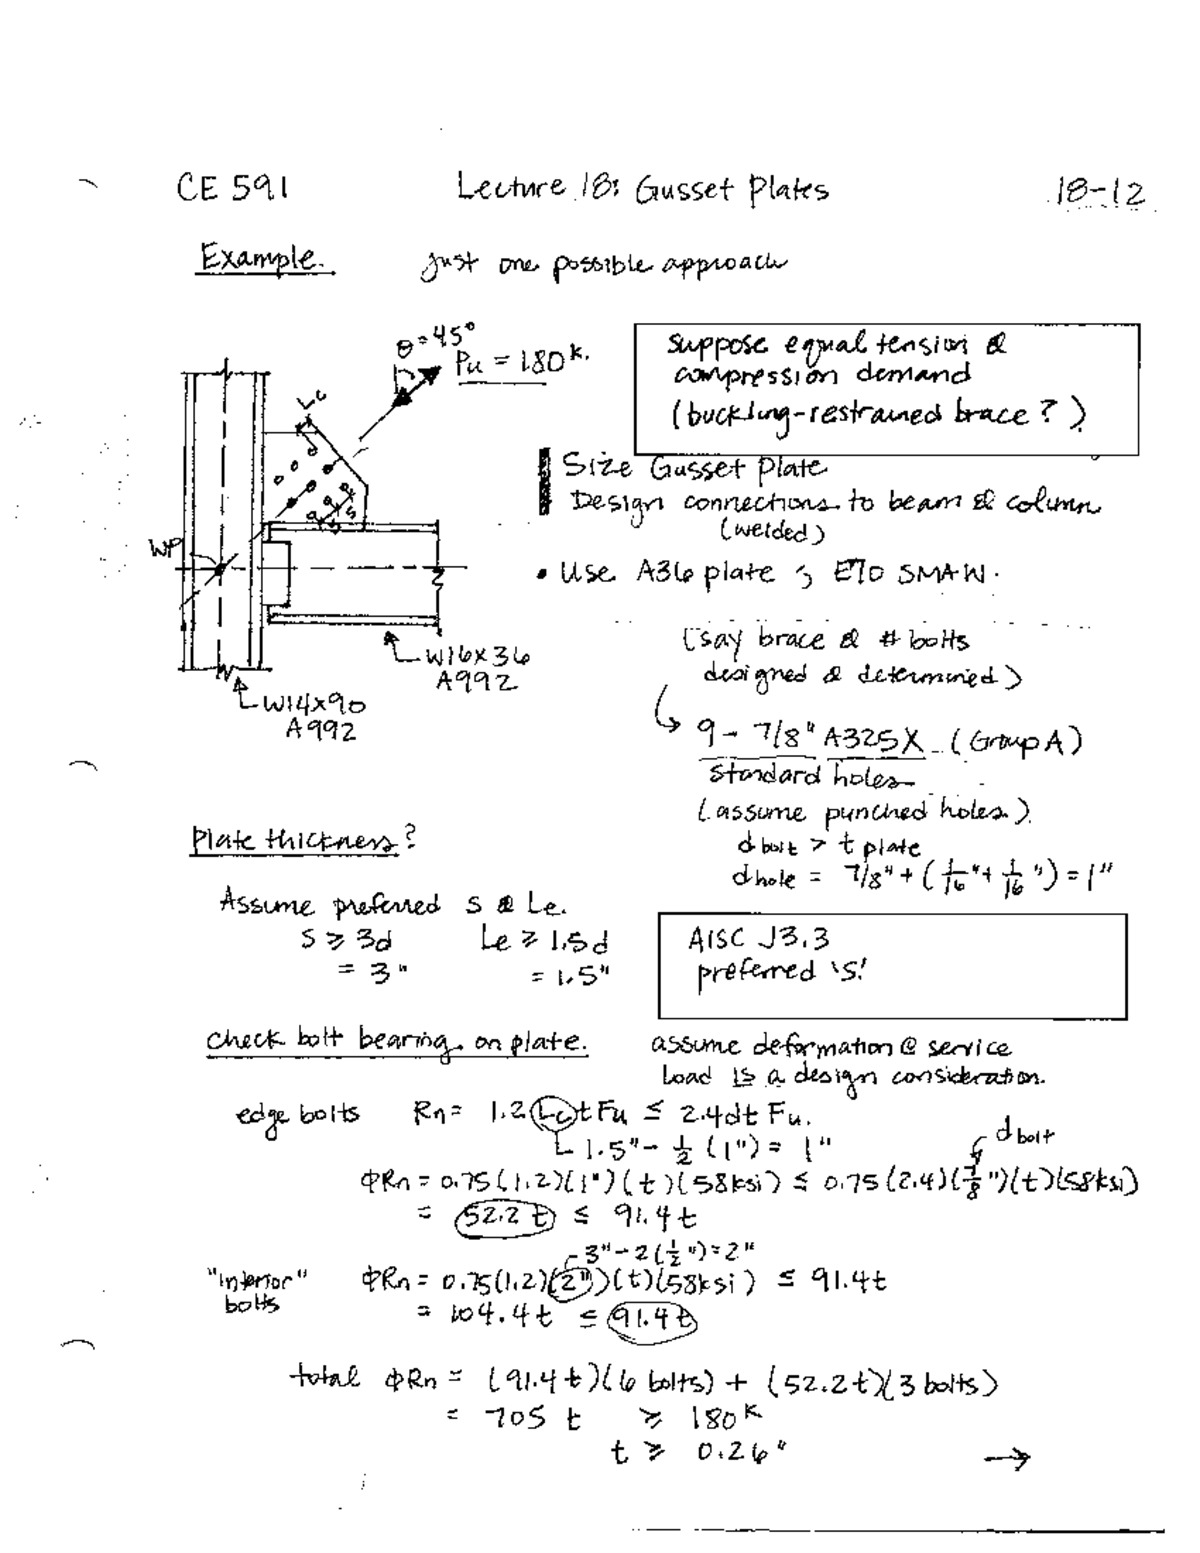 CE 591 Lecture 18: Gusset Plates 18-12
Example. just one possible approach
θ = 45°
Pu = 180 k.
Lc
Suppose equal tension &
compression demand
(buckling-restrained brace?)
Size Gusset Plate
Design connections to beam & column
(welded)
s
s
WP
• Use A36 plate ; E70 SMAW.
(say brace & # bolts
designed & determined)
W16x36
A992
W14x90
A992
9 - 7/8" A325X (Group A)
standard holes
(assume punched holes)
Plate thickness?
d bolt > t plate
d hole = 7/8" + (1/16" + 1/16") = 1"
Assume preferred s & Le.
s ≥ 3d Le ≥ 1.5d
= 3" = 1.5"
AISC J3.3
preferred 's'
check bolt bearing on plate.
assume deformation @ service
load is a design consideration.
edge bolts Rn = 1.2 Lc t Fu ≤ 2.4dt Fu.
1.5" - 1/2 (1") = 1"
d bolt
ΦRn = 0.75(1.2)(1")(t)(58ksi) ≤ 0.75(2.4)(7/8")(t)(58ksi)
= 52.2 t ≤ 91.4 t
3" - 2(1/2") = 2"
"interior" bolts ΦRn = 0.75(1.2)(2")(t)(58ksi) ≤ 91.4t
= 104.4t ≤ 91.4t
total ΦRn = (91.4 t)(6 bolts) + (52.2t)(3 bolts)
= 705 t ≥ 180 k
t ≥ 0.26" →